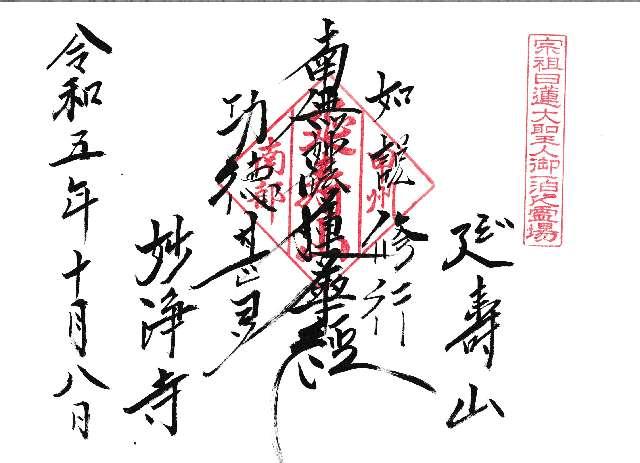 宗祖日蓮大聖人御一泊之霊場
延寿山
如説修行
南無妙法蓮華経
功徳甚多
妙浄寺
令和五年十月八日
甲州
南部